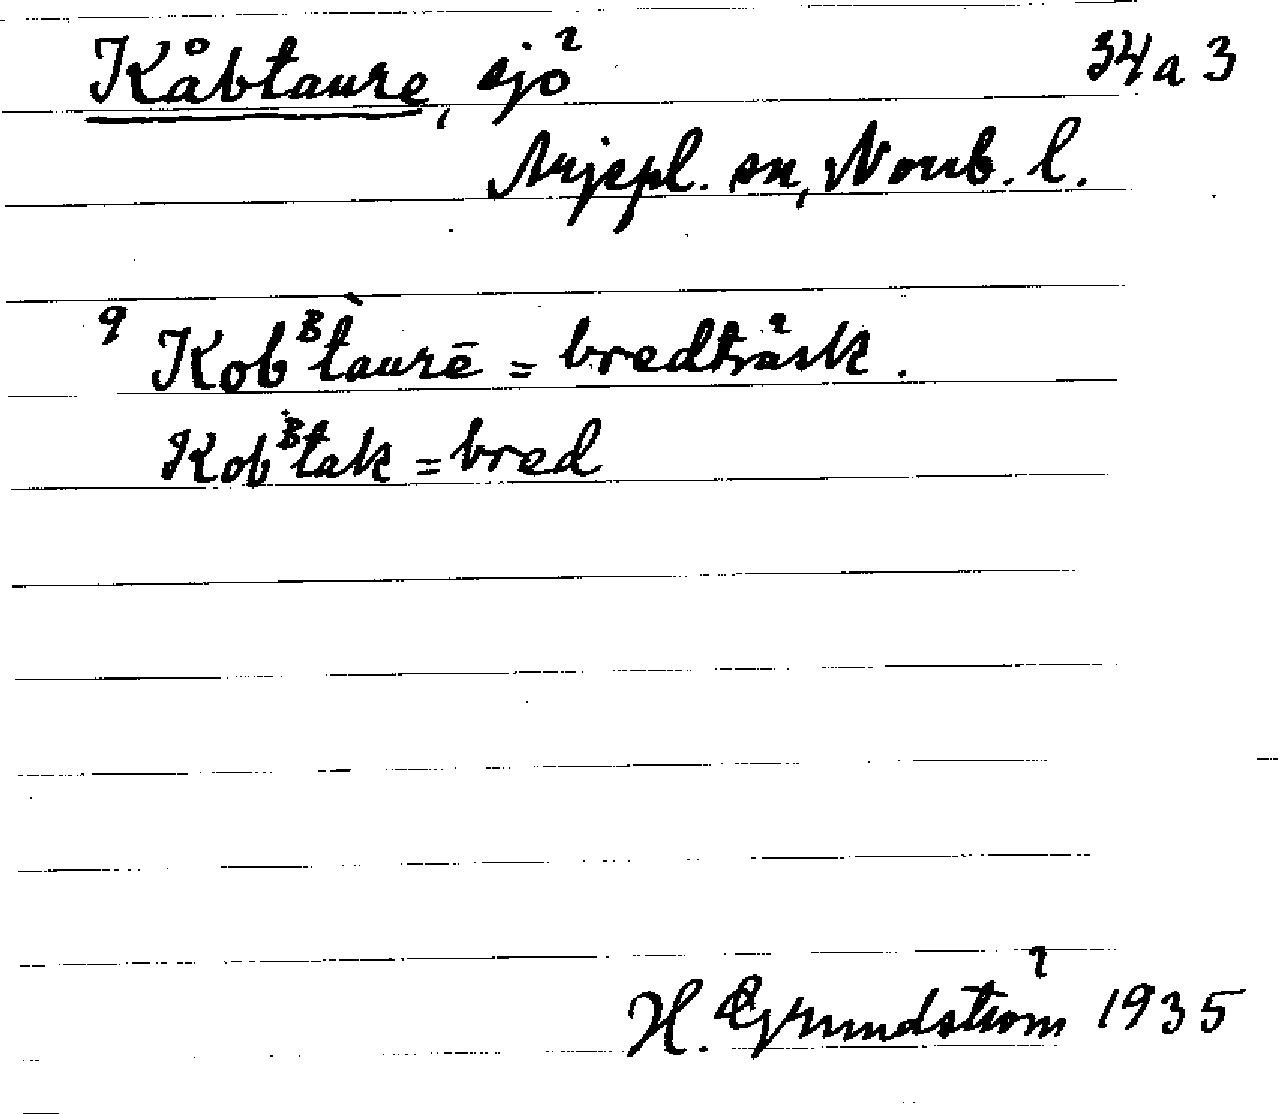 Kåbtaure, sjö 34a3
Arjepl. sn, Norrb. l.
9 Kobᴮtaurē = bredträsk.
Kobᴮtak = bred
H. Grundström 1935